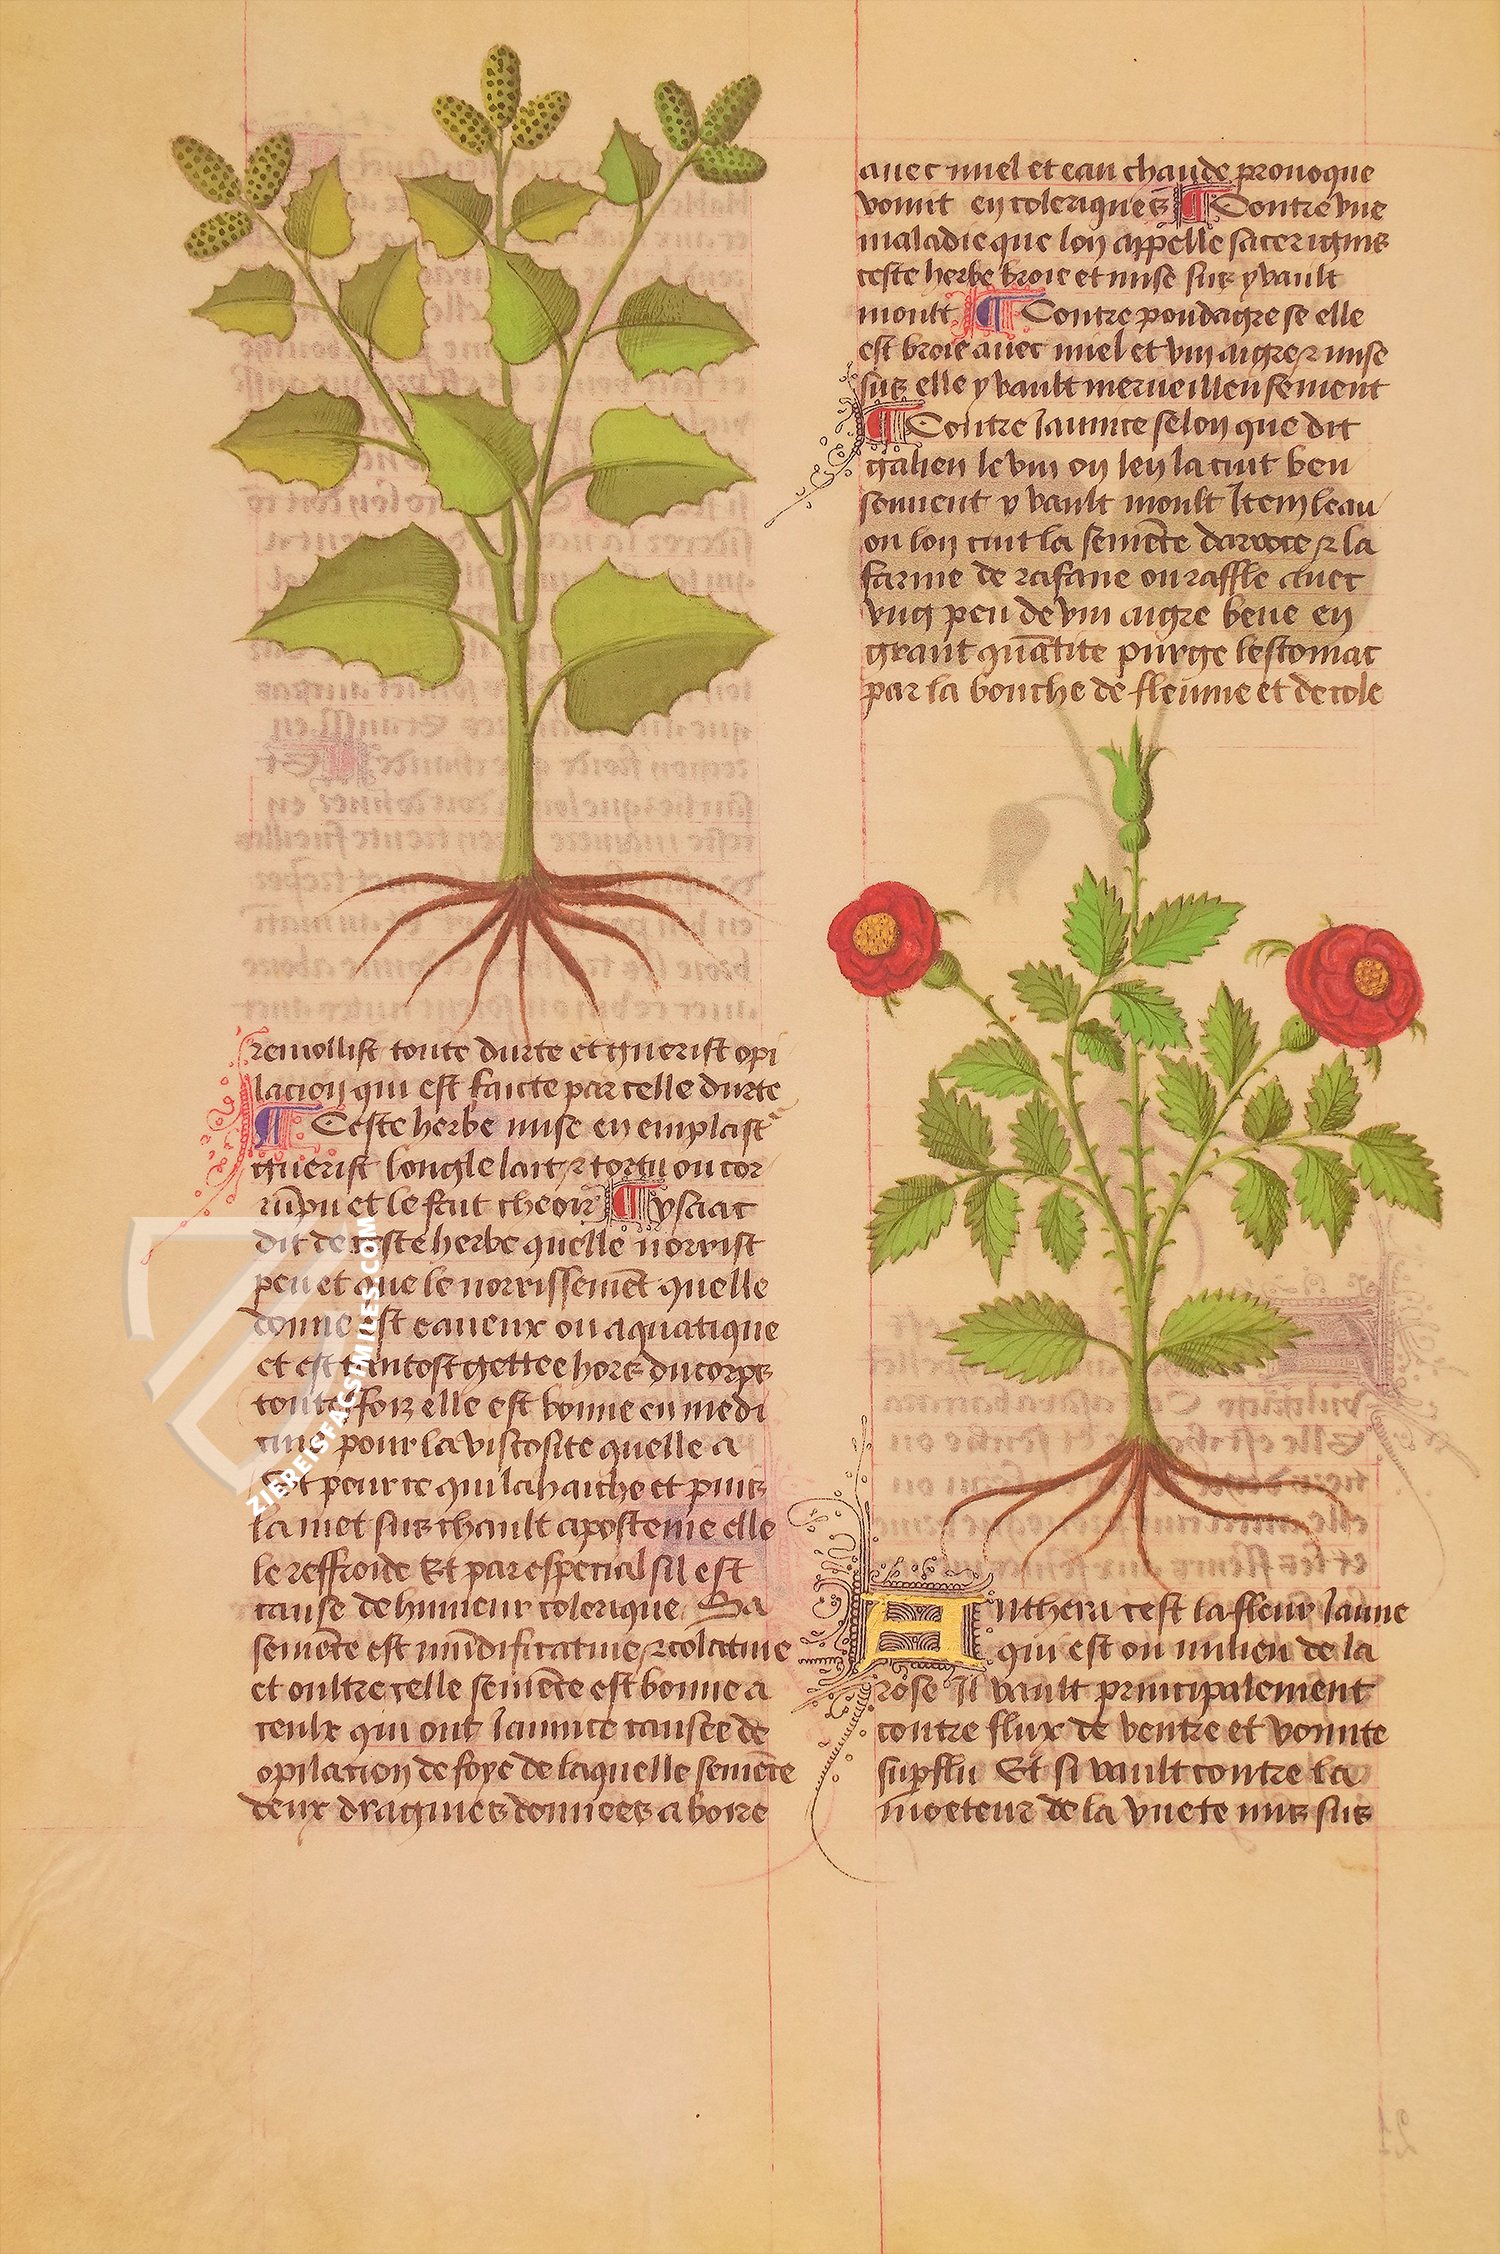 remollist toute durte et guerist opi
lacion qui est faicte par celle durte
¶ Ceste herbe mise en emplast
guerist longle lait ⁊ tortu ou cor
rūpu et le fait cheoir ¶ ysaac
dit de ceste herbe quelle norrist
peu et que le norrissemēt quelle
donne est eaueux ou aquatique
et est tantost gettee hors du corps
toutesfoiz elle est bonne en medi
cine pour la viscosite quelle a
Et pour ce qui la hache et puis
la met sus chault aposteme elle
le reffroide Et par especial sil est
cause de humeur colerique Sa
semēce est mūdificatiue ⁊ colatiue
et oultre celle semēce est bonne a
ceulx qui ont Jaunice causee de
opilacion de foye de laquelle semēce
deux dragmes donnees a boire
auec miel et eau chaude prouoque
vomit en coleriques ¶ Contre vne
maladie que lon appelle sacer ignis
ceste herbe broie et mise sus y vault
moult ¶ Contre poudagre se elle
est broie auec miel et vin aigre ⁊ mise
sus elle y vault merueilleusement
¶ Contre Jaunice selon que dit
galien le vin ou len la cuit beu
souuent y vault moult Item leau
ou lon cuit la semēce darroce ⁊ la
farine de rafane ou raffle auec
vng peu de vin aigre beue en
grant quātite purge lestomac
par la bouche de fleume et de cole
Anthera cest la fleur Jaune
qui est ou milieu de la
rose Il vault principalement
contre flux de ventre et vomite
supflu Et si vault contre la
moeteur de la vuete mis sus
ZIEREISFACSIMILES.COM